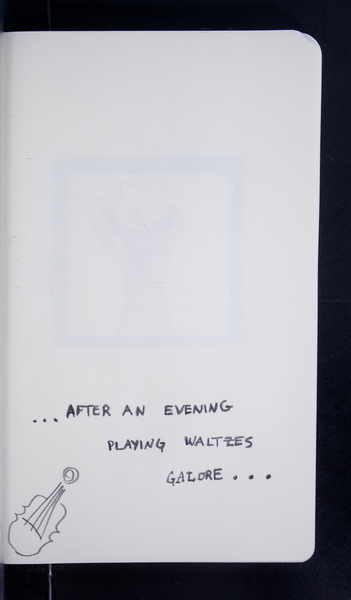 ...AFTER AN EVENING
PLAYING WALTZES
GALORE...